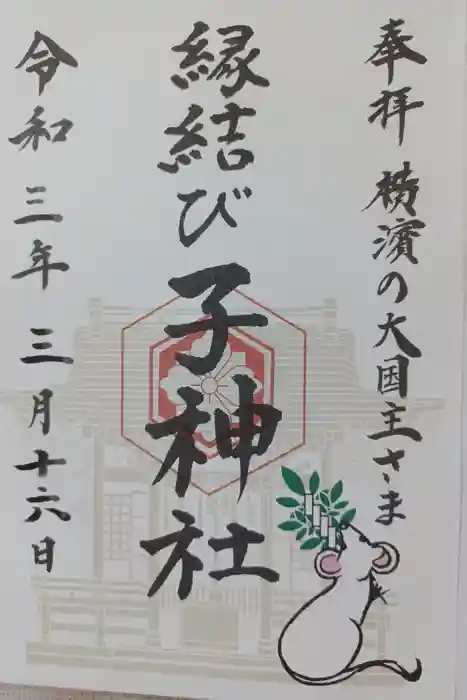 奉拝 横濱の大国主さま
縁結び 子神社
令和三年三月十六日